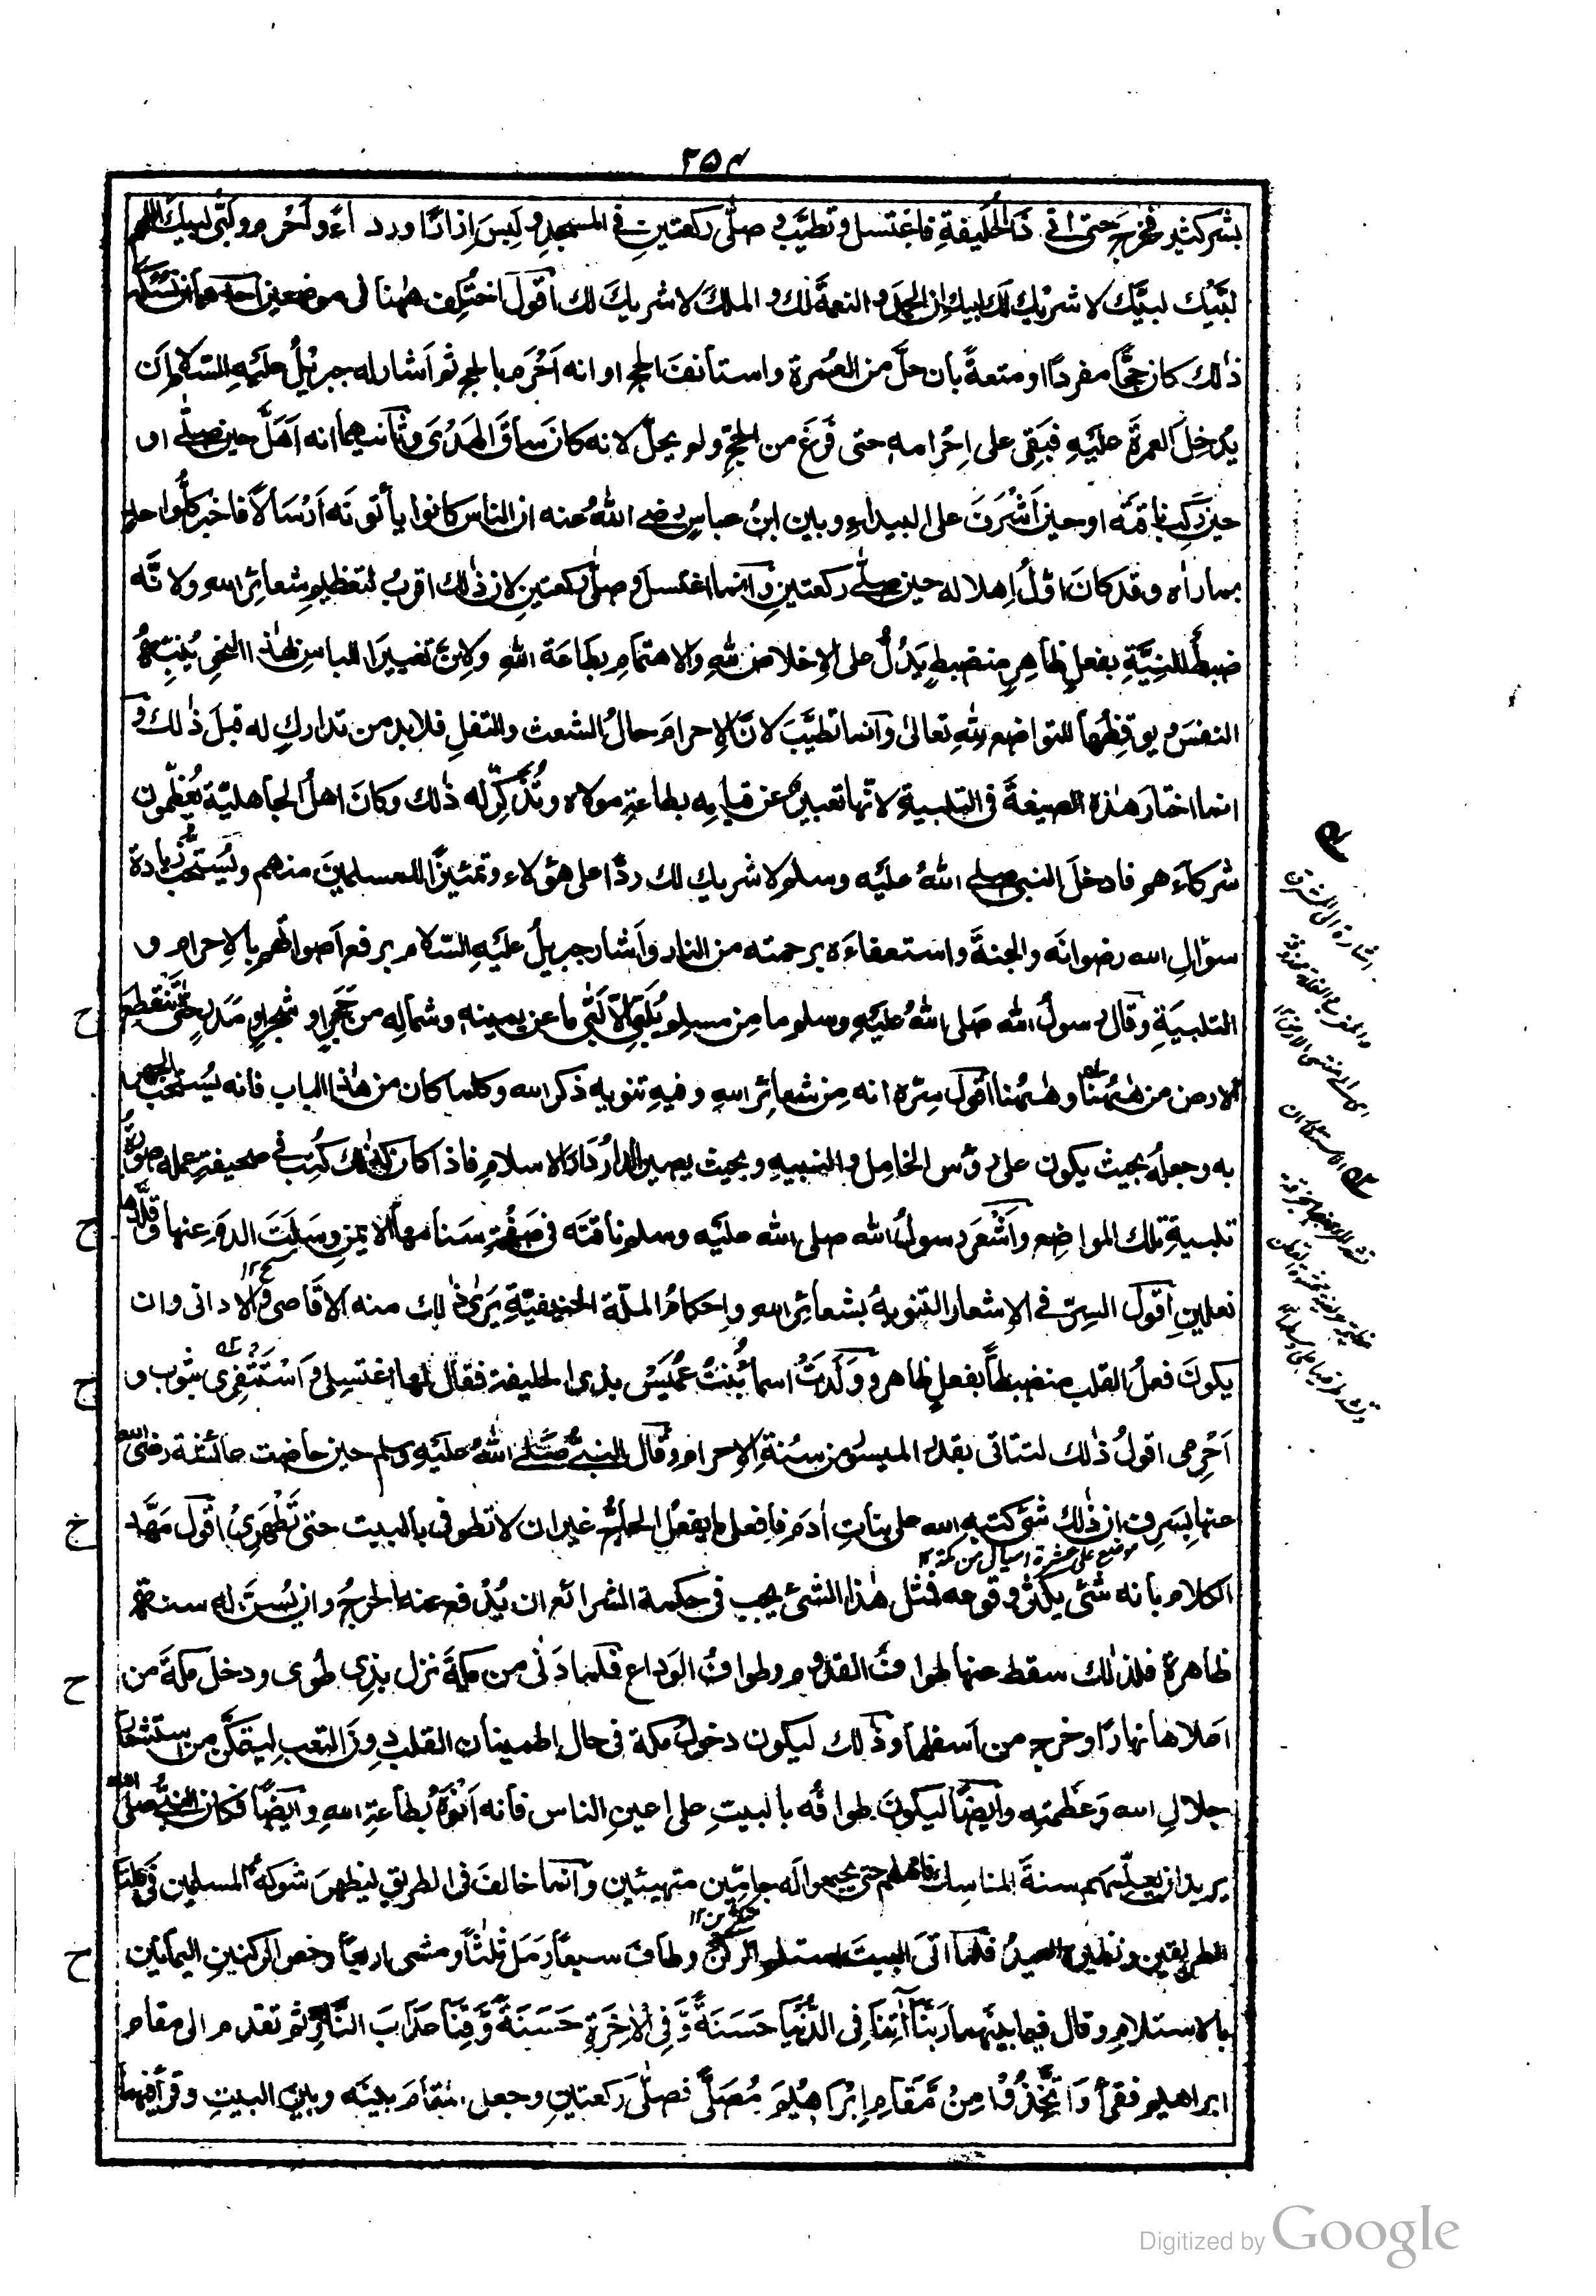 ٢٥٤
بشر كثير فخرج حتى اتى ذَا الحُلَيفةِ فاغتسل وتطيَّب وصلّى ركعتين فى المسجد ولَبِسَ اِزارًا ورداءً واَحْرم ولَبّى لبيك اللهم
لبَّيْك لبيَّك لا شريْك لَكَ لبيك اِنّ الحمدَ و النعمةَ لك و الملكَ لا شريكَ لك اقول اختُلِف هٰهنا فى موضعين احدهما اَن نسكه
ذٰلك كان حجًّا مفردًا او متعةً بأن حلَّ من العُمرة واستأنفَ الحج او انه اَحْرَم بالحج ثم اَشار له جبرئيلُ عليهِ السّلام اَن
يُدخِلَ العمرةَ عليْهِ فبَقِىَ على اِحْرامه حتى فَرَغ من الحَجّ ولم يحلّ لانه كان سَاقَ الهَدْىَ وثانيهما انه اَهَلَّ حين صلّے او
حين رَكِب ناقته او حين اَشْرَفَ على البيداءِ وبين ابنُ عباسٍ رضے اللهُ عنه ان الناس كانوا يأتونَه اَرْسَالًا فاخبر كلُّ واحد
بما راٰه وقد كانَ اوّلُ اِهلاله حين صلّے ركعتينِ وَانما اغتسلَ وصلّٰى ركعتينِ لان ذٰلك اقربُ لتعظيمِ شعائرِ اللهِ ولانَّه
ضبطٌ للنِيَّةِ بفعلٍ ظاهرٍ منضبطٍ يَدُلُّ على الاِخلاص لِلّٰهِ والاهتمامِ بطَاعَة اللهِ ولاِنَّ تغييرَ اللباس بهٰذا النحْوِ يُنبِّهُ
النفسَ ويوقِظُها للتواضع لِلّٰهِ تعالىٰ وَانما تطيَّبَ لانَّ الاِحرامَ حالُ الشعث والتفلِ فلابد من تداركٍ له قبلَ ذٰلك و
انما اختار هٰذه الصيغةَ فى التلبيةِ لانّها تعبيرٌ عن قيامِه بطاعةِ مولاه وتُذكّرِ له ذٰلك وكانَ اهلُ الجاهليّة يُعَظّمون
شركآءَهم فادخلَ النبى صلے اللهُ عليْه وسلم لا شريك لك ردًّا على هؤلاء وتمئيزًا للمسلمينَ منهم ويُستحبُّ زيادة
سوالِ الله رضوانَه والجنةَ واستعفاءَه برحمته من النار وَاَشار جبريلُ عليْهِ السّلام برفع اَصواتهم بالاِحرام و
التلبيَةِ وقال رسولُ الله صَلى اللهُ عليْهِ وسلم ما مِن مسلمٍ يُلَبِّى اِلّا لَبّٰى ما عن يمينهٖ وشمالِه من حَجَرٍ او شجرٍ او مَدَرٍ حتّى تنقطع
الارض من هٰهُنا وهٰهُنا اقول سِرّه انه مِن شعائرِ اللهِ وفيهِ تنويه ذكر الله وكلما كان من هٰذا الباب فانه يُستحبّ الجهر
به وجعلُه بحيث يكون على رؤس الخامِل والنبيهِ وبحيث يصير الدارُ دَارَ الاسلام فاذا كان كذٰلك كُتِبَ فى صحيفةِ عمله صورةُ
تلبيةِ تلك المواضِع وَاَشْعَرَ رسولُ الله صلى الله عليْه وسلم ناقتَه فى صَفْحَةِ سنامها الاَيمن وسَلتَ الدمَ عنها وقلَّدها
نعلين اَقول السِرّ فى الاِشعار التنويهُ بشعائرِ الله واِحكامُ الملّة الحنيفيّة يَرىٰ ذٰلك منه الاقَاصى و الادانى وان
يكونَ فعلُ القلب منضبطًا بفعلٍ ظاهر ووَلَدَتْ اسماءُ بنتُ عُمَيْسٍ بذى الحليفة فقال لها اغتسِلى واَسْتَثْفِرى بثوب و
اَحْرِمى اقولُ ذٰلك لتتاتى بقدر الميسور من سُنةِ الاِحرام وقال النبىُّ صَلّے اللهُ عليْهِ وسلم حين حاضت عائشة رضى الله
عنها بسَرِف ان ذٰلك شئ كتبه الله على بناتِ اٰدم فافعلى ما يفعلُ الحاجّ غير ان لا تطوفى بالبيت حتى تَطْهُرِىْ اقول مَهَّد
موضع على عشرة اميال من مكة ١٢
الكلام بأنه شئ يكثر وقوعه فمثل هٰذا الشئ يجب فى حكمة الشرائع ان يُدْفع عنه الحرجُ وان يُسَنَّ له سنة
ظاهرةٌ فلذٰلك سقط عنها طوافُ القدوم وطوافُ الوَداع فلما دَنٰى من مكةَ نزل بذِى طُوى ودخل مكةَ من
اعلاها نهارًا وخرج من اَسفلها وذٰلك ليكون دخولُ مكة فى حال اطمينان القلبِ دونَ التعب ليتمكَّن من استشعار
جلالِ الله وعَظْمتِه وايضًا ليكونَ طوافُه بالبيتِ على اعينِ الناس فأنه اَنْوَهُ بطاعةِ اللهِ وايضًا فكان النبىُّ صلى الله
يريد ان يعلِّمَهم سنةَ المناسِك فامهلهم حتى يجتمعوا له جامّين متهيئين وانما خالفَ فى الطريقِ ليظهرَ شوكةُ المسلمين فى كلتا
الطريقين ونظيره العيدُ فلما اتى البيتَ استلم الركن وطاف سبعًا رَمَل ثلٰثًا ومشى اربعًا وخص الركنينِ اليمانين
بالاستلام وقال فيما بينهما رَبَّنَآ اٰتِنَا فِى الدُّنْيَا حَسَنَةً وَّفِى الْاٰخِرَةِ حَسَنَةً وَّقِنَا عَذَابَ النَّارِ ثم تقدم الى مقام
ابراهيم فقرأ وَاتَّخِذُوْا مِنْ مَّقَامِ اِبْرَاهِيْمَ مُصَلًّى فصلّٰى ركعتينِ وجعل المقامَ بينَه وبين البيتِ وقرأ فيهما
Digitized by Google